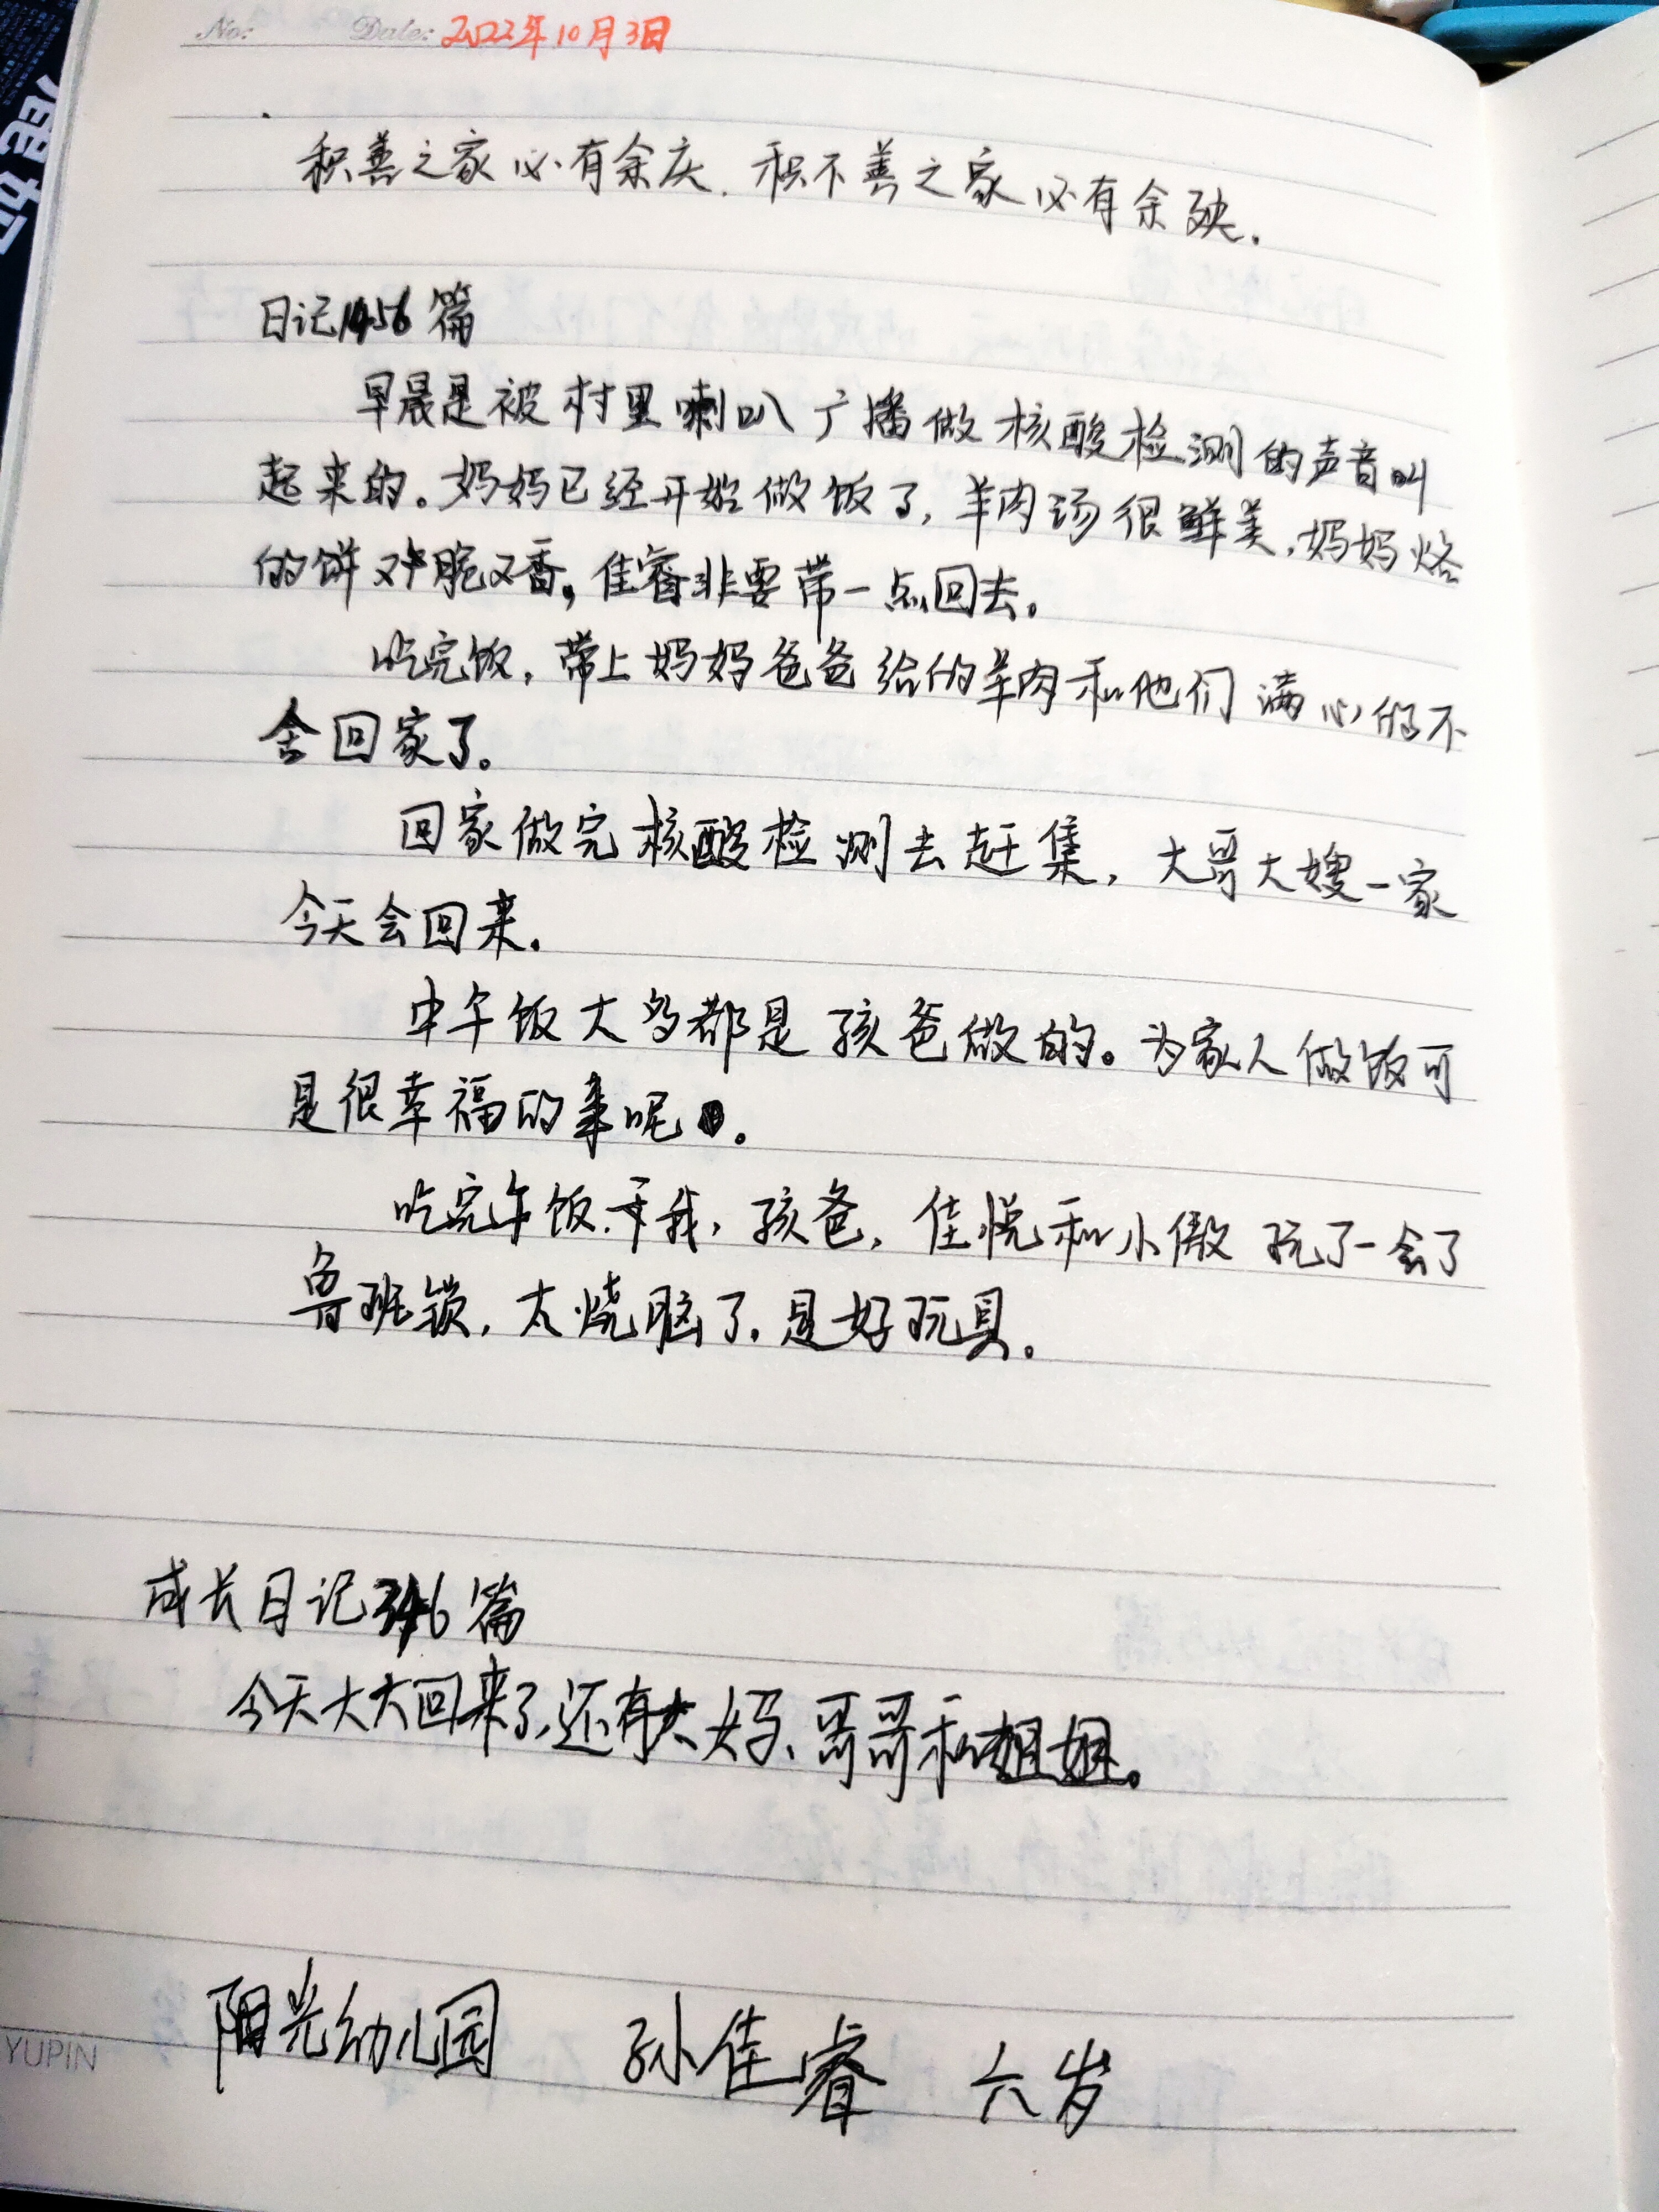 No: Date: 2022年10月3日
积善之家必有余庆.积不善之家必有余殃.
日记1456篇
早晨是被村里喇叭广播做核酸检测的声音叫
起来的。妈妈已经开始做饭了,羊肉汤很鲜美,妈妈烙
的饼又脆又香,佳睿非要带一点回去。
吃完饭,带上妈妈爸爸给的羊肉和他们满心的不
舍回家了。
回家做完核酸检测去赶集,大哥大嫂一家
今天会回来.
中午饭大多都是孩爸做的。为家人做饭可
是很幸福的事呢。
吃完午饭.我,孩爸,佳悦和小傲玩了一会了
鲁班锁,太烧脑了.是好玩具。
成长日记346篇
今天大大回来了,还有大妈、哥哥和姐姐。
阳光幼儿园 孙佳睿 六岁
YUPIN